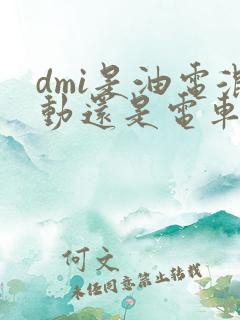 dmi是油電混
動還是電車
何文
未經同意禁止轉載